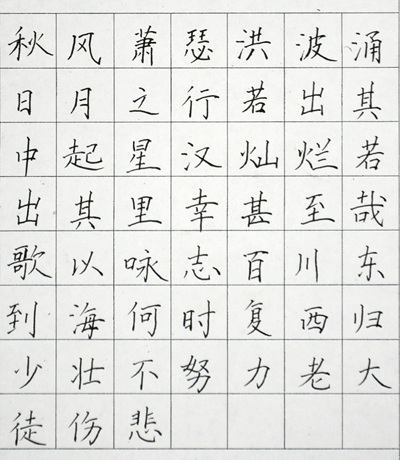 秋风萧瑟洪波涌
日月之行若出其
中起星汉灿烂若
出其里幸甚至哉
歌以咏志百川东
到海何时复西归
少壮不努力老大
徒伤悲